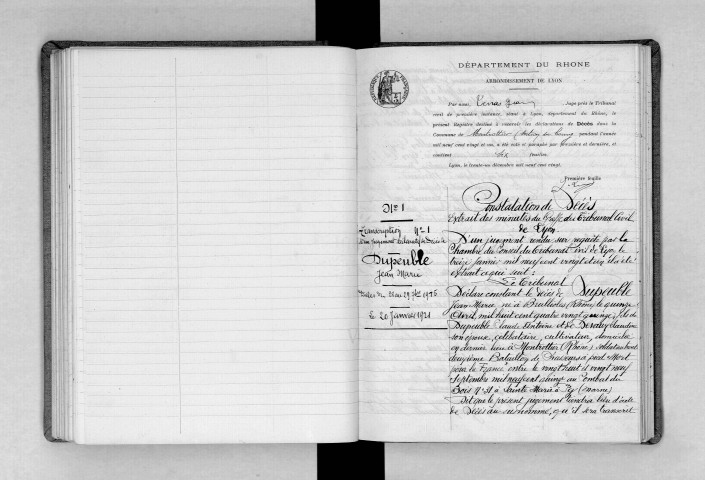 DÉPARTEMENT DU RHONE
ARRONDISSEMENT DE LYON
Par nous, Juge près le Tribunal
civil de première instance, séant à Lyon, département du Rhône, le
présent Registre destiné à recevoir les déclarations de Décès dans la
Commune de Montrottier pendant l'année
mil neuf cent vingt et un, a été coté et paraphé par première et dernière, et
contient six feuilles.
Lyon, le trente-un décembre mil neuf cent vingt.
Première feuille
N° 1
Transcription N° 1
d'un jugement déclaratif de Décès de
Dupeuble
Jean Marie
Décès du 28 au 29 7bre 1915
Le 20 Janvier 1921
Constatation de Décès
Extrait des minutes du Greffe du Tribunal Civil
de Lyon
D'un jugement rendu sur requête par la
Chambre du Conseil du Tribunal Civil de Lyon, le
treize Janvier mil neuf cent vingt et un, il a été
extrait ce qui suit :
Le Tribunal
Déclare constant le décès de Dupeuble
Jean Marie, né à Brullioles (Rhône) le quinze
Avril mil huit cent quatre vingt quinze, fils de
Dupeuble Claude Antoine et de Claudine
son épouse, célibataire, cultivateur, domicilié
en dernier lieu à Montrottier (Rhône) soldat au
deuxième Bataillon de Chasseurs à pied, Mort
pour la France entre le vingt huit et vingt neuf
Septembre mil neuf cent quinze au Combat du
Bois à Sainte Marie à Py (Marne)
Dit que le présent jugement tiendra lieu d'acte
de Décès au susnommé, qu'il sera transcrit